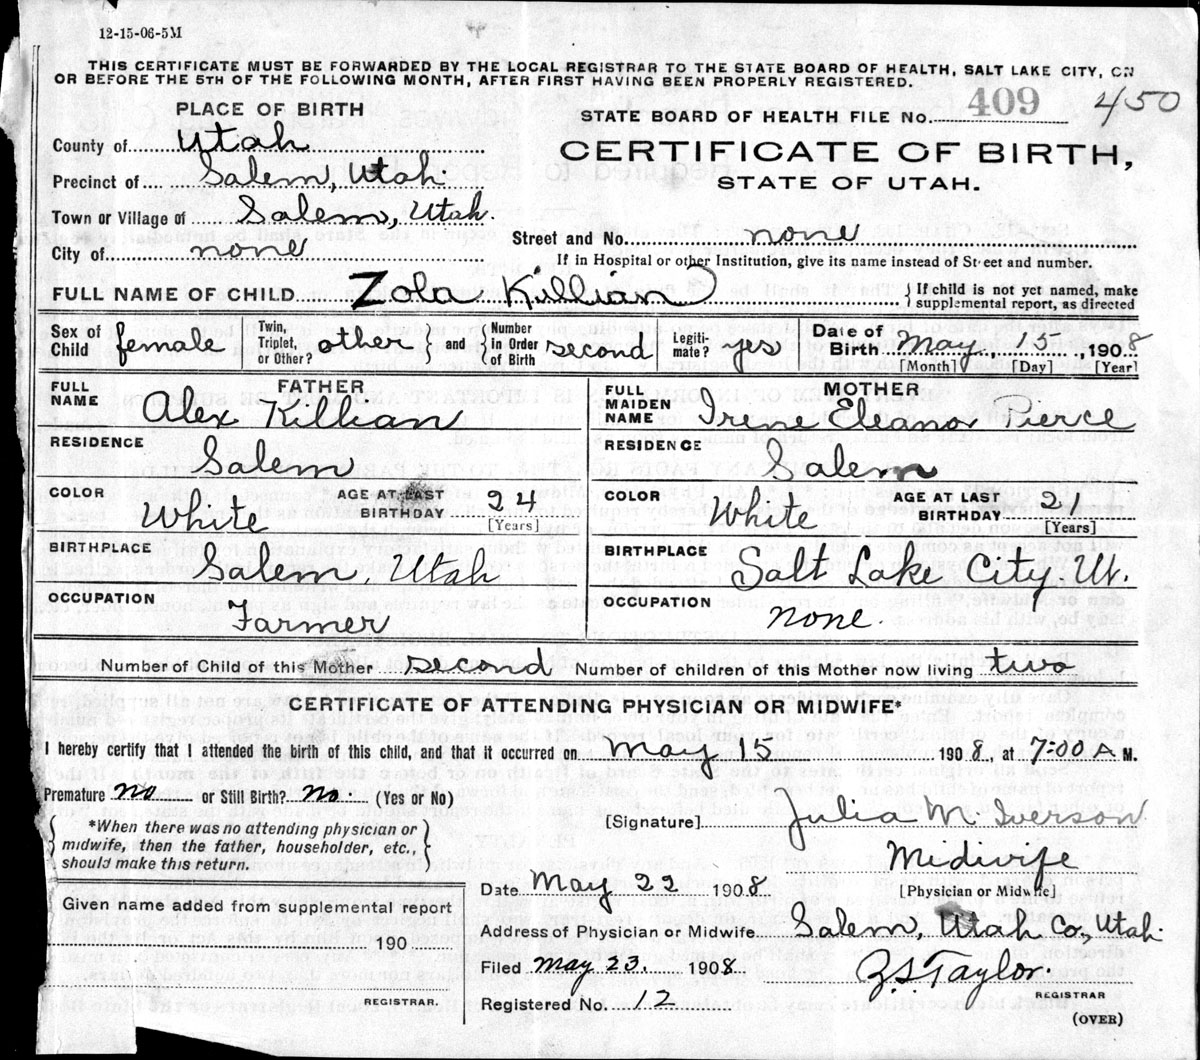 12-15-06-5M
THIS CERTIFICATE MUST BE FORWARDED BY THE LOCAL REGISTRAR TO THE STATE BOARD OF HEALTH, SALT LAKE CITY, ON
OR BEFORE THE 5TH OF THE FOLLOWING MONTH, AFTER FIRST HAVING BEEN PROPERLY REGISTERED.
PLACE OF BIRTH
STATE BOARD OF HEALTH FILE No. 409 450
County of Utah
CERTIFICATE OF BIRTH,
STATE OF UTAH.
Precinct of Salem, Utah
Town or Village of Salem, Utah.
City of none
Street and No. none
If in Hospital or other Institution, give its name instead of Street and number.
FULL NAME OF CHILD Zola Killian } If child is not yet named, make supplemental report, as directed
Sex of Child female
Twin, Triplet, or Other? other } and { Number in Order of Birth second
Legiti-mate? yes
Date of Birth May 15, 1908
[Month] [Day] [Year]
FATHER
FULL NAME Alex Killian
RESIDENCE
Salem
COLOR White
AGE AT LAST BIRTHDAY 24 [Years]
BIRTHPLACE
Salem, Utah
OCCUPATION
Farmer
MOTHER
FULL MAIDEN NAME Irene Eleanor Pierce
RESIDENCE
Salem
COLOR White
AGE AT LAST BIRTHDAY 21 [Years]
BIRTHPLACE
Salt Lake City Ut.
OCCUPATION
none.
Number of Child of this Mother second Number of children of this Mother now living two
CERTIFICATE OF ATTENDING PHYSICIAN OR MIDWIFE*
I hereby certify that I attended the birth of this child, and that it occurred on May 15 1908, at 7:00 A M.
Premature no or Still Birth? no (Yes or No)
*When there was no attending physician or
midwife, then the father, householder, etc.,
should make this return.
[Signature] Julia M. Iverson
Midivife
[Physician or Midwife]
Given name added from supplemental report
190
REGISTRAR.
Date May 22 1908
Address of Physician or Midwife Salem, Utah Co., Utah.
Filed May 23. 1908
Z.S. Taylor.
REGISTRAR
Registered No. 12
(OVER)